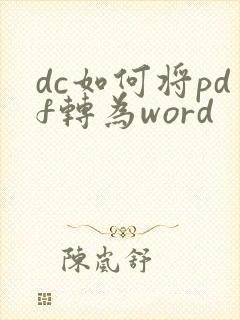 dc如何将pd
f轉為word
陳嵐舒